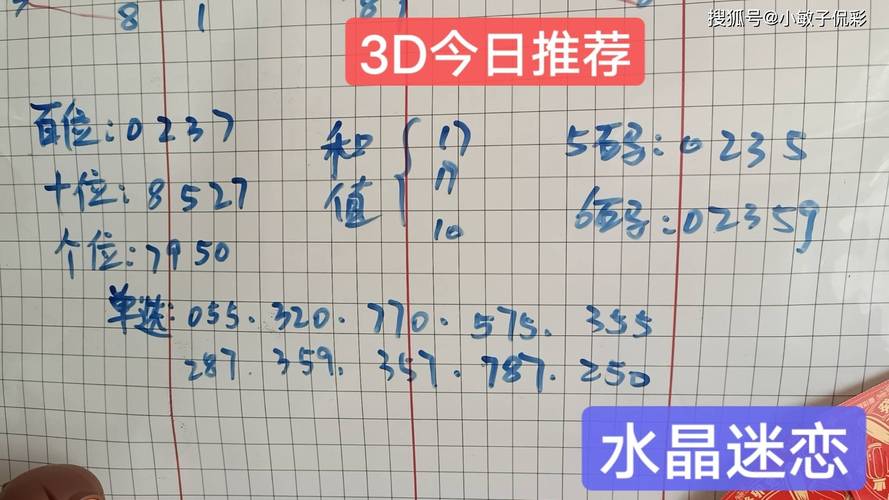 8 1 81
搜狐号@小敏子侃彩
3D今日推荐
百位:0237
十位:8527
个位:7950
和值
17
19
10
5码:0235
6码:02359
单选:055.320.770.575.355
287.359.357.787.250
水晶迷恋